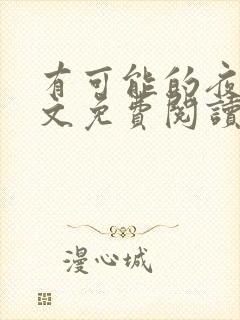 有可能的夜
文免費閱讀
漫心城